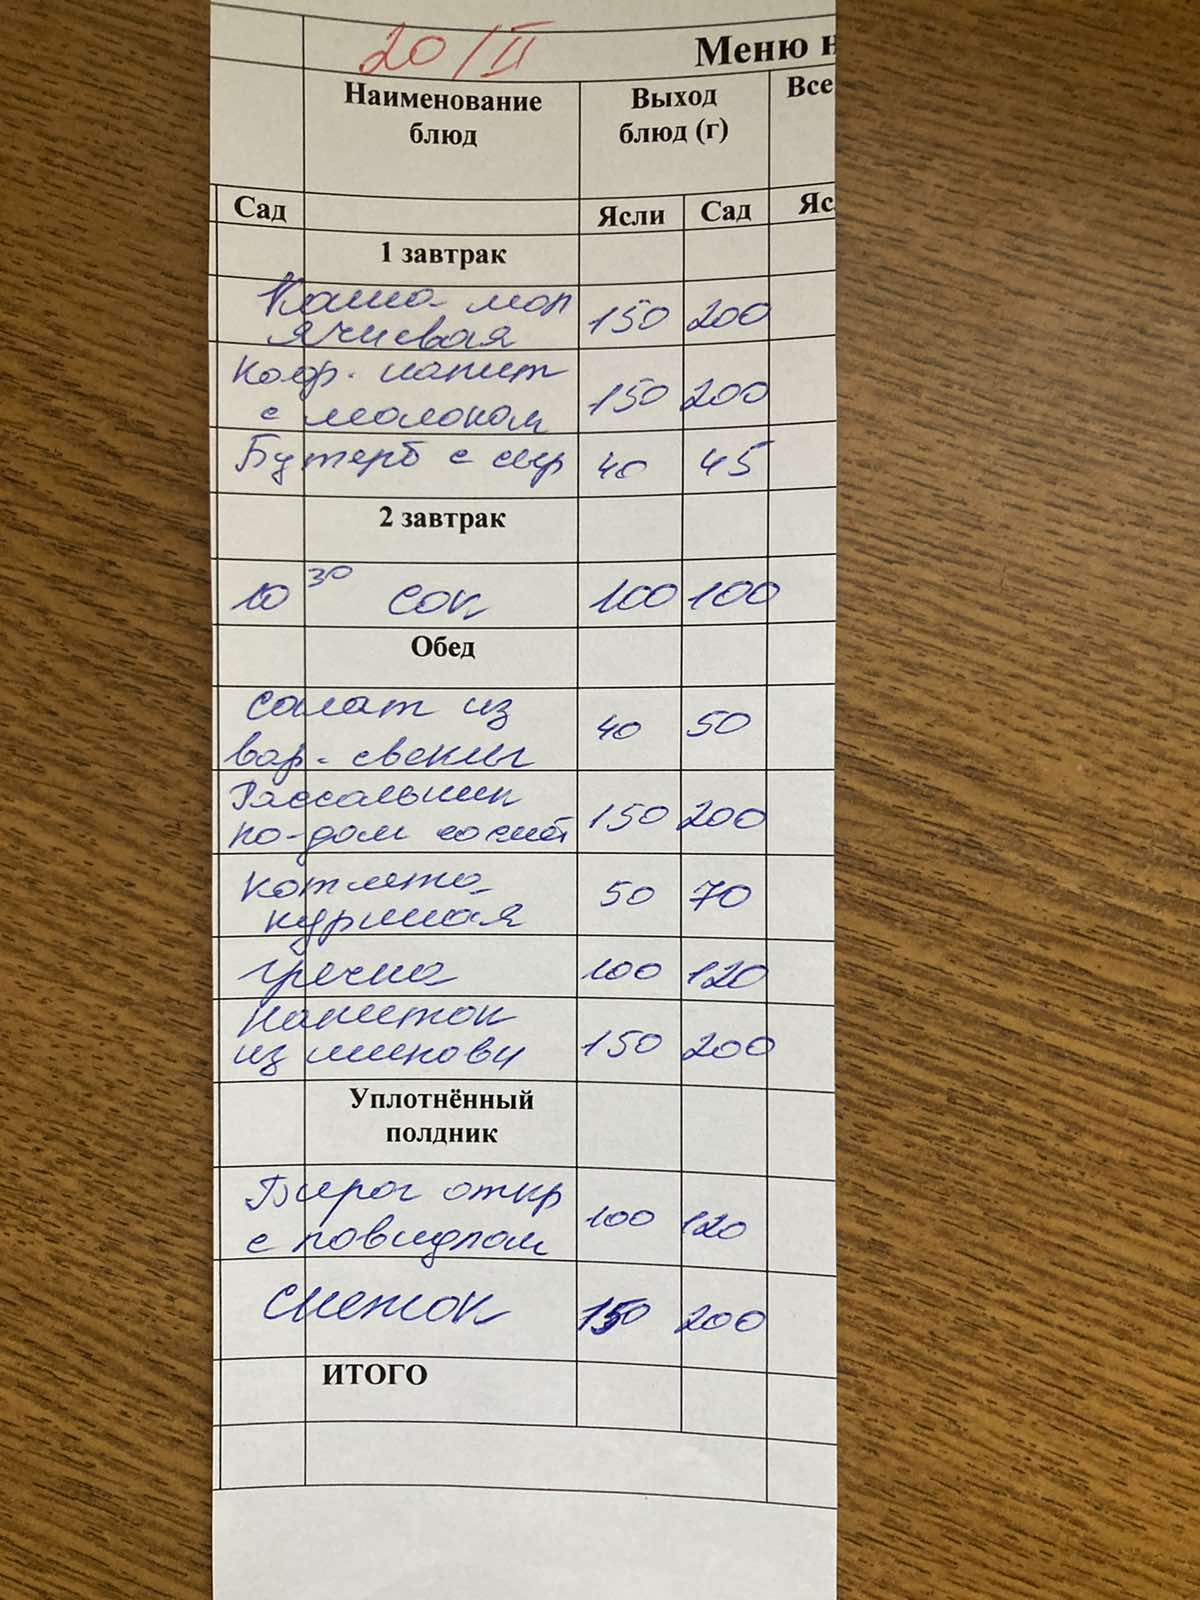 20/II
Меню н
Наименование
блюд
Выход
блюд (г)
Все
Сад
Ясли
Сад
Яс
1 завтрак
Каша мол
ячневая
150 200
Коф. напит
с молоком
150 200
Бутерб с сыр 40 45
2 завтрак
10 30 сок 100 100
Обед
Салат из
вар. свеклы
40 50
Рассольник
по-дом со смет
150 200
Котлета
куриная
50 70
гречка 100 120
напиток
из шиповн
150 200
Уплотнённый
полдник
Пирог откр
с повидлом
100 120
снежок 150 200
ИТОГО